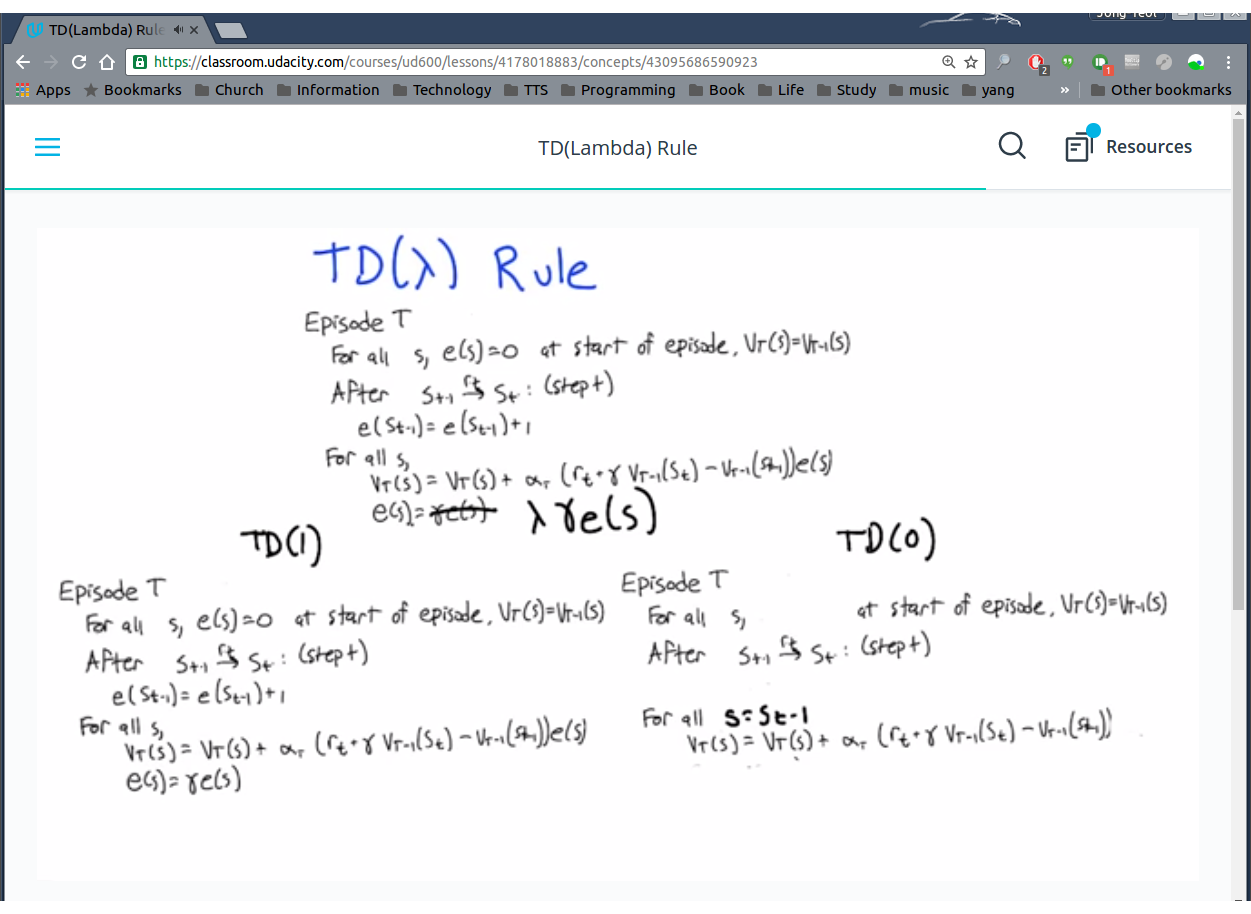 Jong Yeol
TD(Lambda) Rule
https://classroom.udacity.com/courses/ud600/lessons/4178018883/concepts/43095686590923
2
1
Apps Bookmarks Church Information Technology TTS Programming Book Life Study music yang » Other bookmarks
TD(Lambda) Rule
Resources
TD(λ) Rule
Episode T
For all s, e(s)=0 at start of episode, V_T(s)=V_{T-1}(s)
After s_{t-1} →^{r_t} s_t : (step t)
e(s_{t-1})= e(s_{t-1})+1
For all s,
V_T(s) = V_T(s) + α_T (r_t + γ V_{T-1}(s_t) - V_{T-1}(s_{t-1}))e(s)
e(s)= γe(s) λγe(s)
TD(1)
Episode T
For all s, e(s)=0 at start of episode, V_T(s)=V_{T-1}(s)
After s_{t-1} →^{r_t} s_t : (step t)
e(s_{t-1})= e(s_{t-1})+1
For all s,
V_T(s) = V_T(s) + α_T (r_t + γ V_{T-1}(s_t) - V_{T-1}(s_{t-1}))e(s)
e(s)= γe(s)
TD(0)
Episode T
For all s, at start of episode, V_T(s)=V_{T-1}(s)
After s_{t-1} →^{r_t} s_t : (step t)
For all s=s_{t-1}
V_T(s) = V_T(s) + α_T (r_t + γ V_{T-1}(s_t) - V_{T-1}(s_{t-1}))